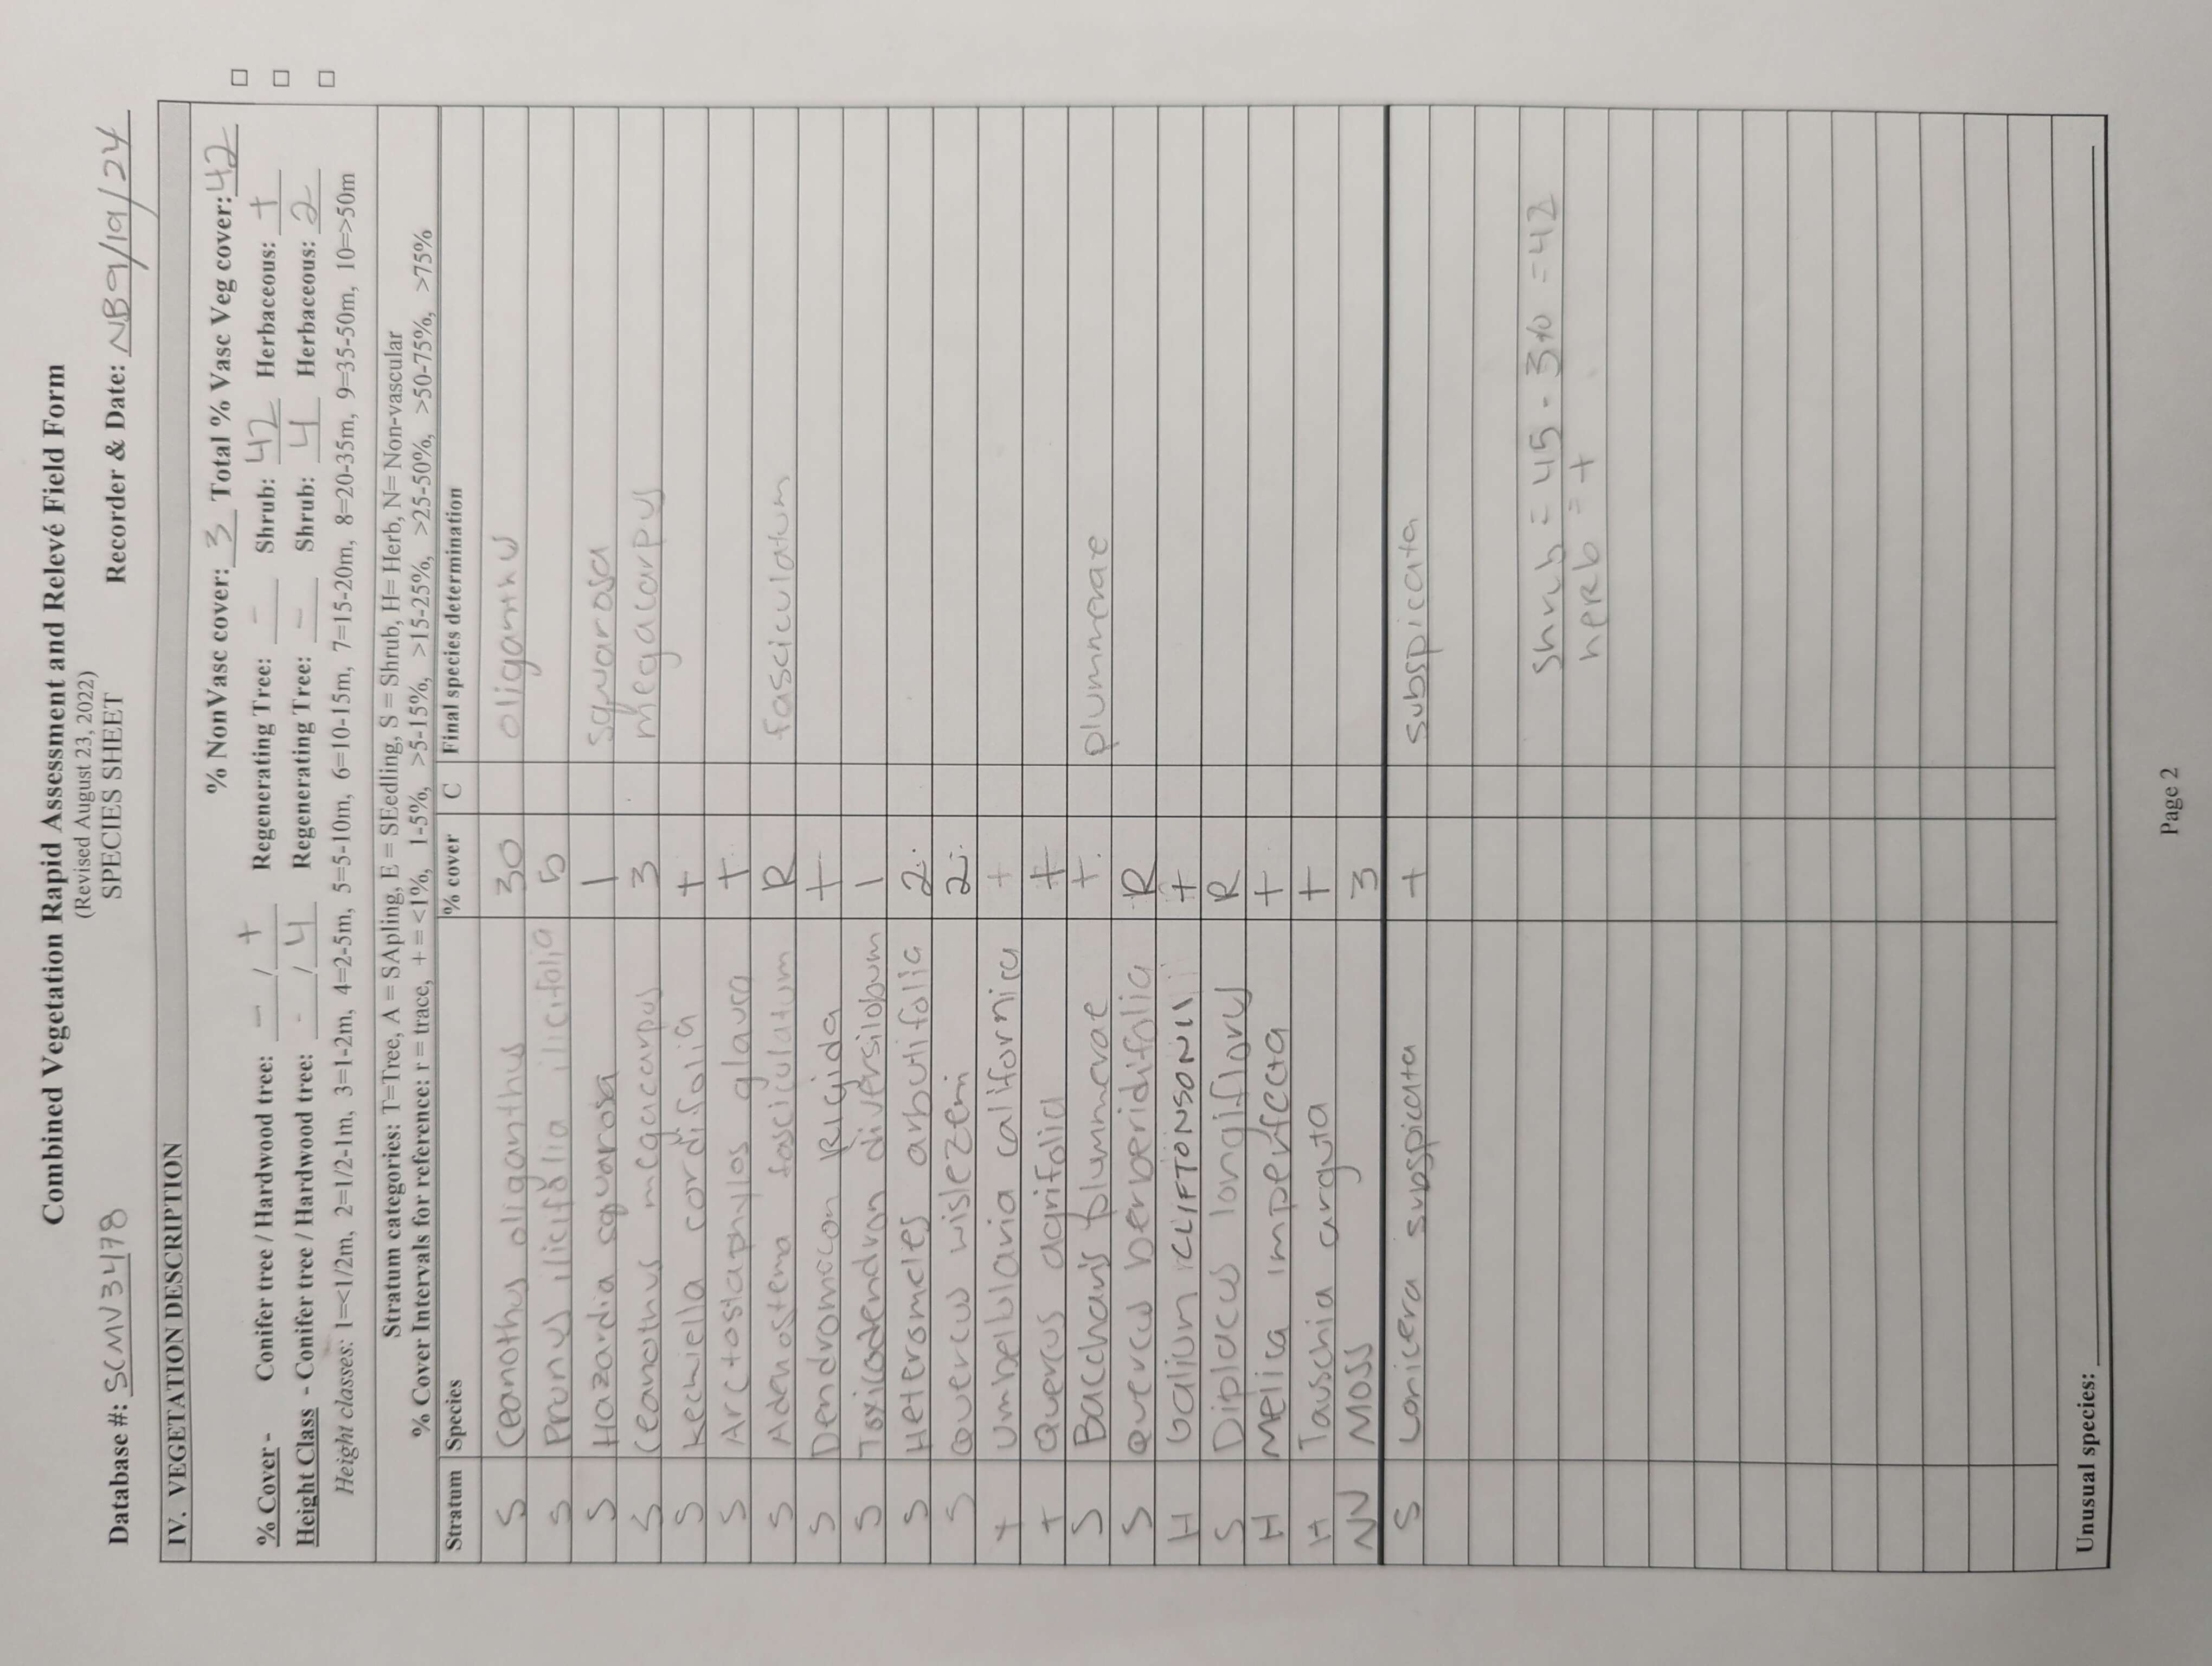 Combined Vegetation Rapid Assessment and Relevé Field Form
(Revised August 23, 2022)
SPECIES SHEET
Database #: SCMV3478 Recorder & Date: NB 9/19/24
IV. VEGETATION DESCRIPTION
% NonVasc cover: 3 Total % Vasc Veg cover: 42
% Cover - Conifer tree / Hardwood tree: - / + Regenerating Tree: - Shrub: 42 Herbaceous: +
Height Class - Conifer tree / Hardwood tree: - / 4 Regenerating Tree: - Shrub: 4 Herbaceous: 2
Height classes: 1=<1/2m, 2=1/2-1m, 3=1-2m, 4=2-5m, 5=5-10m, 6=10-15m, 7=15-20m, 8=20-35m, 9=35-50m, 10=>50m
Stratum categories: T=Tree, A = SApling, E = SEedling, S = Shrub, H= Herb, N= Non-vascular
% Cover Intervals for reference: r = trace, + = <1%, 1-5%, >5-15%, >15-25%, >25-50%, >50-75%, >75%
Stratum Species % cover C Final species determination
S Ceanothus oliganthus 30 oliganthus
S Prunus ilicifolia ilicifolia 5
S Hazardia squarrosa 1 squarosa
S Ceanothus megacarpus 3 megacarpus
S Keckiella cordifolia +
S Arctostaphylos glauca +
S Adenostema fasciculatum R fasciculatum
S Dendromicon RIGida +
S Toxicodendron diversilobum 1
S Heteromeles arbutifolia 2
S Quercus wislezeni 2
T Umbellularia californica +
T Quercus agrifolia +
S Baccharis plummerae + plummerae
S Quercus berberidifolia R
H Galium CLIFTONSONII +
S Diplacus longiflorus R
H Melica imperfecta +
H Tauschia arguta +
NV MOSS 3
S Lonicera subspicata + subspicata
Shrub = 45 - 3% = 42
herb = +
Unusual species:
Page 2